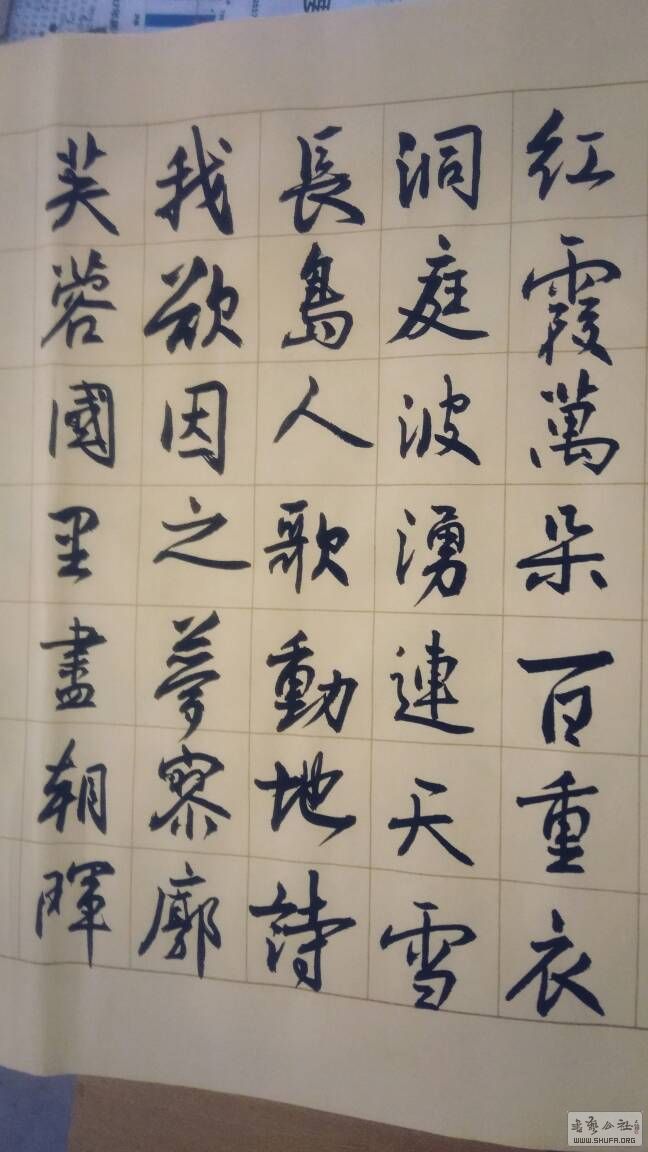 红霞萬朵百重衣
洞庭波湧連天雪
長島人歌動地詩
我欲因之夢寥廓
芙蓉國里盡朝暉
WWW.SHUFA.ORG